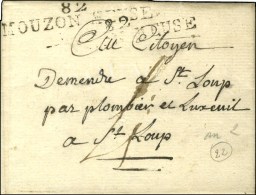 82
MOUZON MEUSE
82
MEUSE
Au Citoyen
Demendre a St. Loup
par plombier et Luxeuil
a St. Loup
an 2
82